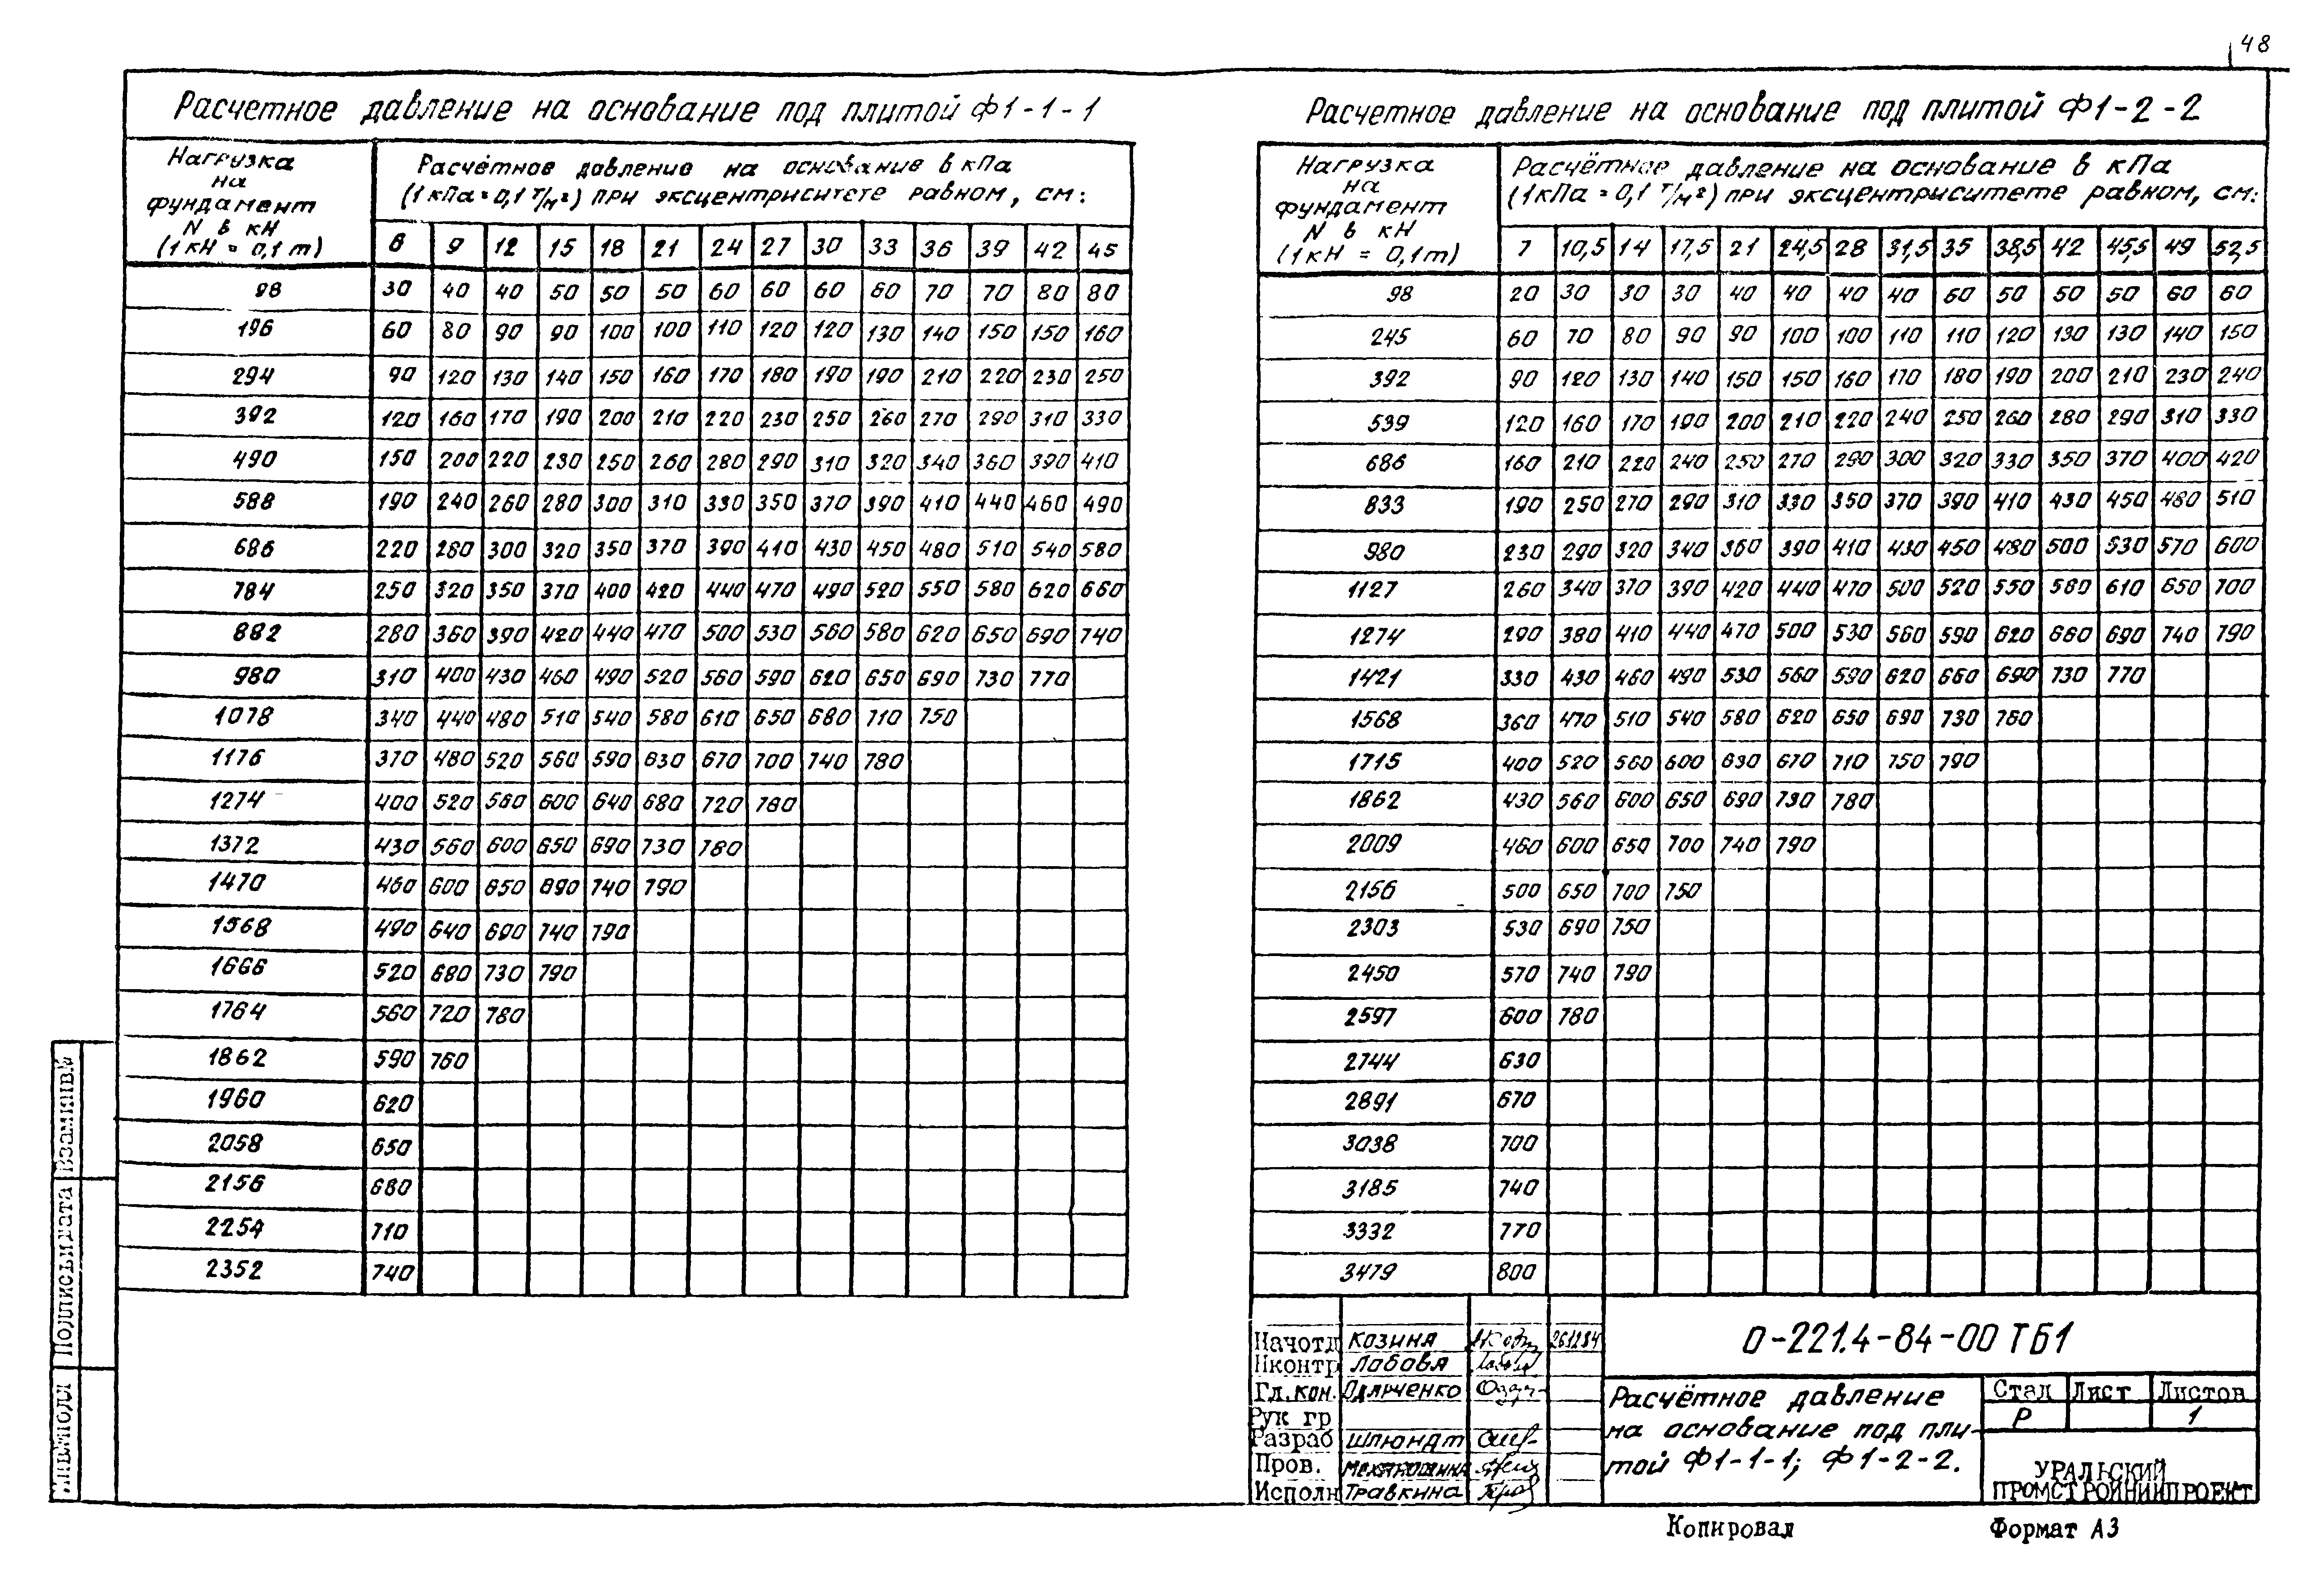 48
Расчетное давление на основание под плитой Ф1-1-1
Нагрузка на фундамент N в кН (1кН = 0,1т)
Расчётное давление на основание в кПа
(1кПа=0,1 т/м²) при эксцентриситете равном, см:
6 9 12 15 18 21 24 27 30 33 36 39 42 45
98 30 40 40 50 50 50 60 60 60 60 70 70 80 80
196 60 80 90 90 100 100 110 120 120 130 140 150 150 160
294 90 120 130 140 150 160 170 180 190 190 210 220 230 250
392 120 160 170 190 200 210 220 230 250 260 270 290 310 330
490 150 200 220 230 250 260 280 290 310 320 340 360 390 410
588 190 240 260 280 300 310 330 350 370 390 410 440 460 490
686 220 280 300 320 350 370 390 410 430 450 480 510 540 580
784 250 320 350 370 400 420 440 470 490 520 550 580 620 660
882 280 360 390 420 440 470 500 530 560 580 620 650 690 740
980 310 400 430 460 490 520 560 590 620 650 690 730 770
1078 340 440 480 510 540 580 610 650 680 710 750
1176 370 480 520 560 590 630 670 700 740 780
1274 400 520 560 600 640 680 720 760
1372 430 560 600 650 690 730 780
1470 460 600 650 690 740 790
1568 490 640 690 740 790
1666 520 680 730 790
1764 560 720 780
1862 590 760
1960 620
2058 650
2156 680
2254 710
2352 740
Расчетное давление на основание под плитой Ф1-2-2
Нагрузка на фундамент N в кН (1кН = 0,1т)
Расчётное давление на основание в кПа
(1кПа = 0,1 т/м²) при эксцентриситете равном, см:
7 10,5 14 17,5 21 24,5 28 31,5 35 38,5 42 45,5 49 52,5
98 20 30 30 30 40 40 40 40 60 50 50 50 60 60
245 60 70 80 90 90 100 100 110 110 120 130 130 140 150
392 90 120 130 140 150 150 160 170 180 190 200 210 230 240
539 120 160 170 190 200 210 220 240 250 260 280 290 310 330
686 160 210 220 240 250 270 290 300 320 330 350 370 400 420
833 190 250 270 290 310 330 350 370 390 410 430 450 480 510
980 230 290 320 340 360 390 410 430 450 480 500 530 570 600
1127 260 340 370 390 420 440 470 500 520 550 580 610 650 700
1274 290 380 410 440 470 500 530 560 590 620 660 690 740 790
1421 330 430 460 490 530 560 590 620 660 690 730 770
1568 360 470 510 540 580 620 650 690 730 760
1715 400 520 560 600 630 670 710 750 790
1862 430 560 600 650 690 730 780
2009 460 600 650 700 740 790
2156 500 650 700 750
2303 530 690 750
2450 570 740 790
2597 600 780
2744 630
2891 670
3038 700
3185 740
3332 770
3479 800
Взаминв№
Подпись и дата
Инв№подл
Начотд Козина 261284
Нконтр Лабовя
Гл.кон. Одярченко
Рук гр
Разраб Шлюндт
Пров. Мехяношина
Исполн Травкина
0-221.4-84-00 ТБ1
Расчётное давление
на основание под пли-
той Ф1-1-1; Ф1-2-2.
Стад Лист Листов
Р 1
УРАЛЬСКИЙ
ПРОМСТРОЙНИИПРОЕКТ
Копировал Формат А3